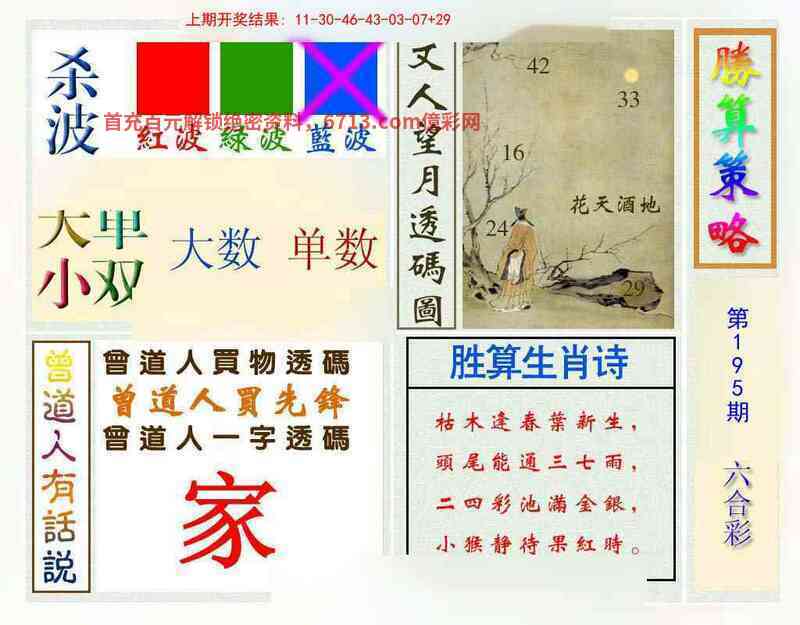 上期开奖结果：11-30-46-43-03-07+29
杀波
紅波 綠波 藍波
首充百元解锁绝密资料，6713.com億彩网
大小
甲双
大数 单数
文人望月透碼圖
42
33
16
花天酒地
24
29
勝算策略
第195期
六合彩
曾道人有話説
曾道人買物透碼
曾道人買先鋒
曾道人一字透碼
家
胜算生肖诗
枯木逢春葉新生，
頭尾能通三七雨，
二四彩池滿金銀，
小猴静待果紅時。